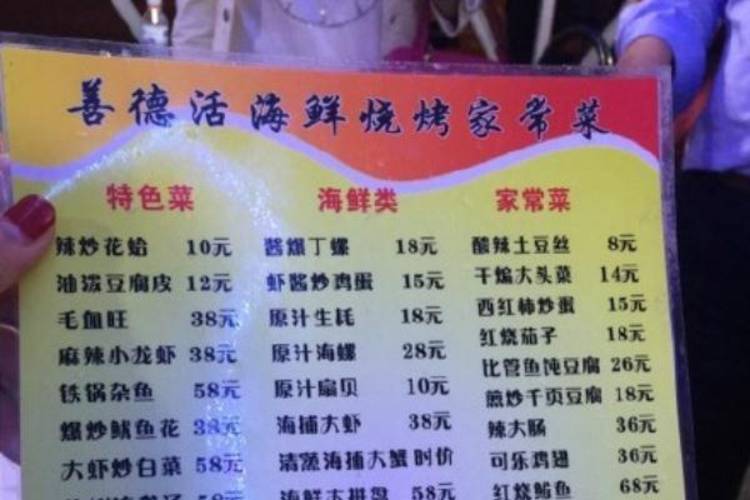 善德活海鲜烧烤家常菜
特色菜
辣炒花蛤 10元
油泼豆腐皮 12元
毛血旺 38元
麻辣小龙虾 38元
铁锅杂鱼 58元
爆炒鱿鱼花 38元
大虾炒白菜 58元
58元
海鲜类
酱爆丁螺 18元
虾酱炒鸡蛋 15元
原汁生蚝 18元
原汁海螺 28元
原汁扇贝 10元
海捕大虾 38元
清蒸海捕大蟹 时价
海鲜大拼盘 58元
家常菜
酸辣土豆丝 8元
干煸大头菜 14元
西红柿炒蛋 15元
红烧茄子 18元
比管鱼炖豆腐 26元
煎炒千页豆腐 18元
辣大肠 36元
可乐鸡翅 36元
红烧鲅鱼 68元